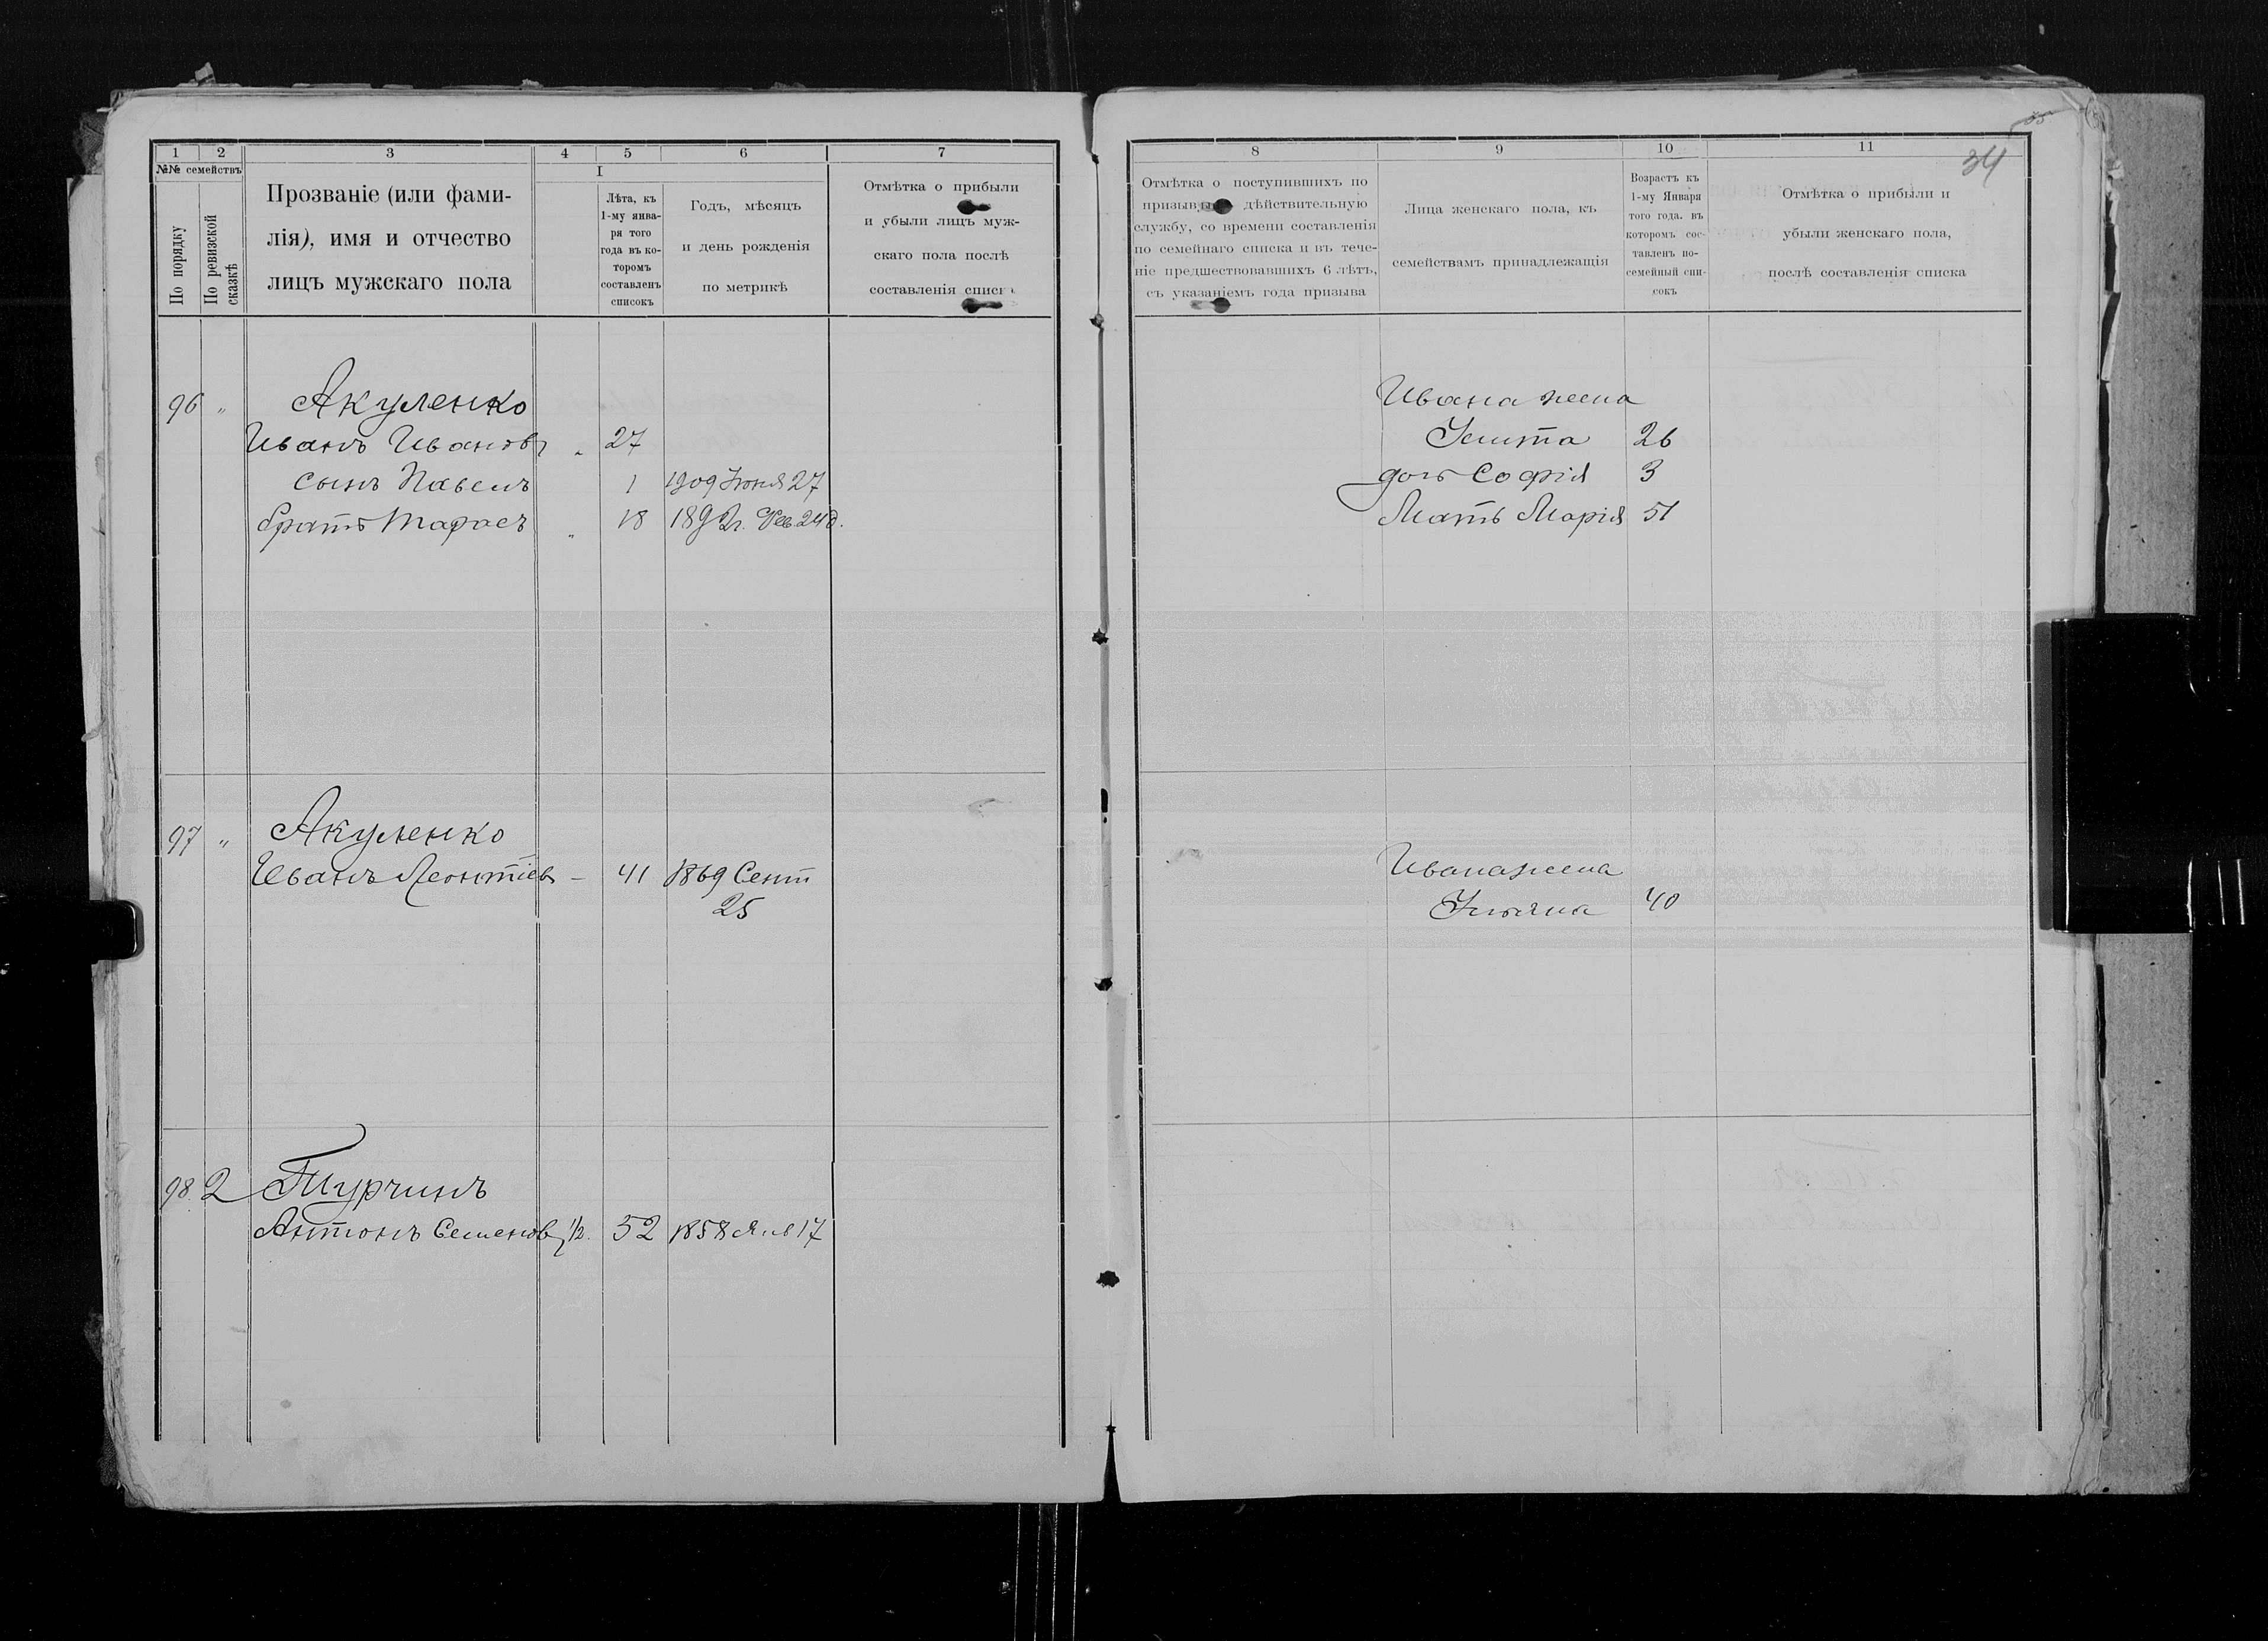 1 2 3 4 5 6 7
№№ семействъ
По порядку
По ревизской сказкѣ
Прозваніе (или фами-
лія), имя и отчество
лицъ мужскаго пола
I
Лѣта, къ
1-му янва-
ря того
года въ ко-
торомъ
составленъ
списокъ
Годъ, мѣсяцъ
и день рожденія
по метрикѣ
Отмѣтка о прибыли
и убыли лицъ муж-
скаго пола послѣ
составленія списка
96 " Акуленко
Иванъ Ивановъ " 27
сынъ Павелъ 1 1909 Іюня 27
братъ Тарасъ " 18 1892 г. Фев. 24 д.
97 " Акуленко
Иванъ Леонтіев – 41 1869 Сент
25
98 2 Турчинъ
Антонъ Семенов 1/2. 52 1858 Янв 17
8 9 10 11
34
Отмѣтка о поступившихъ по
призыву дѣйствительную
службу, со времени составленія
по семейнаго списка и въ тече-
ніе предшествовавшихъ 6 лѣтъ,
съ указаніемъ года призыва
Лица женскаго пола, къ
семействамъ принадлежащія
Возрастъ къ
1-му Января
того года. въ
которомъ сос-
тавленъ по-
семейный спи-
сокъ
Отмѣтка о прибыли и
убыли женскаго пола,
послѣ составленія списка
Ивана жена
26
дочь Софія 3
Мать Марія 51
Ивана жена
Ульяна 40